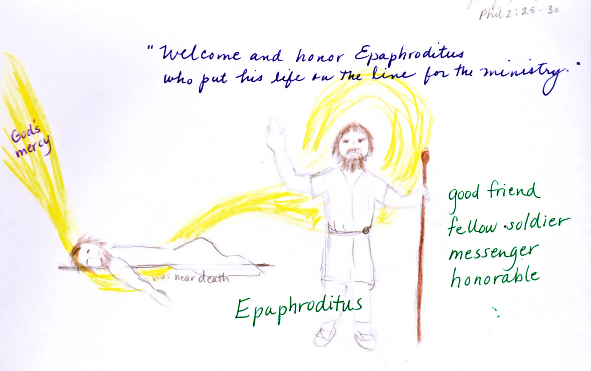 Phil 2:25-30
"Welcome and honor Epaphroditus
who put his life on the line for the ministry."
God's
mercy
was near death
Epaphroditus
good friend
fellow soldier
messenger
honorable